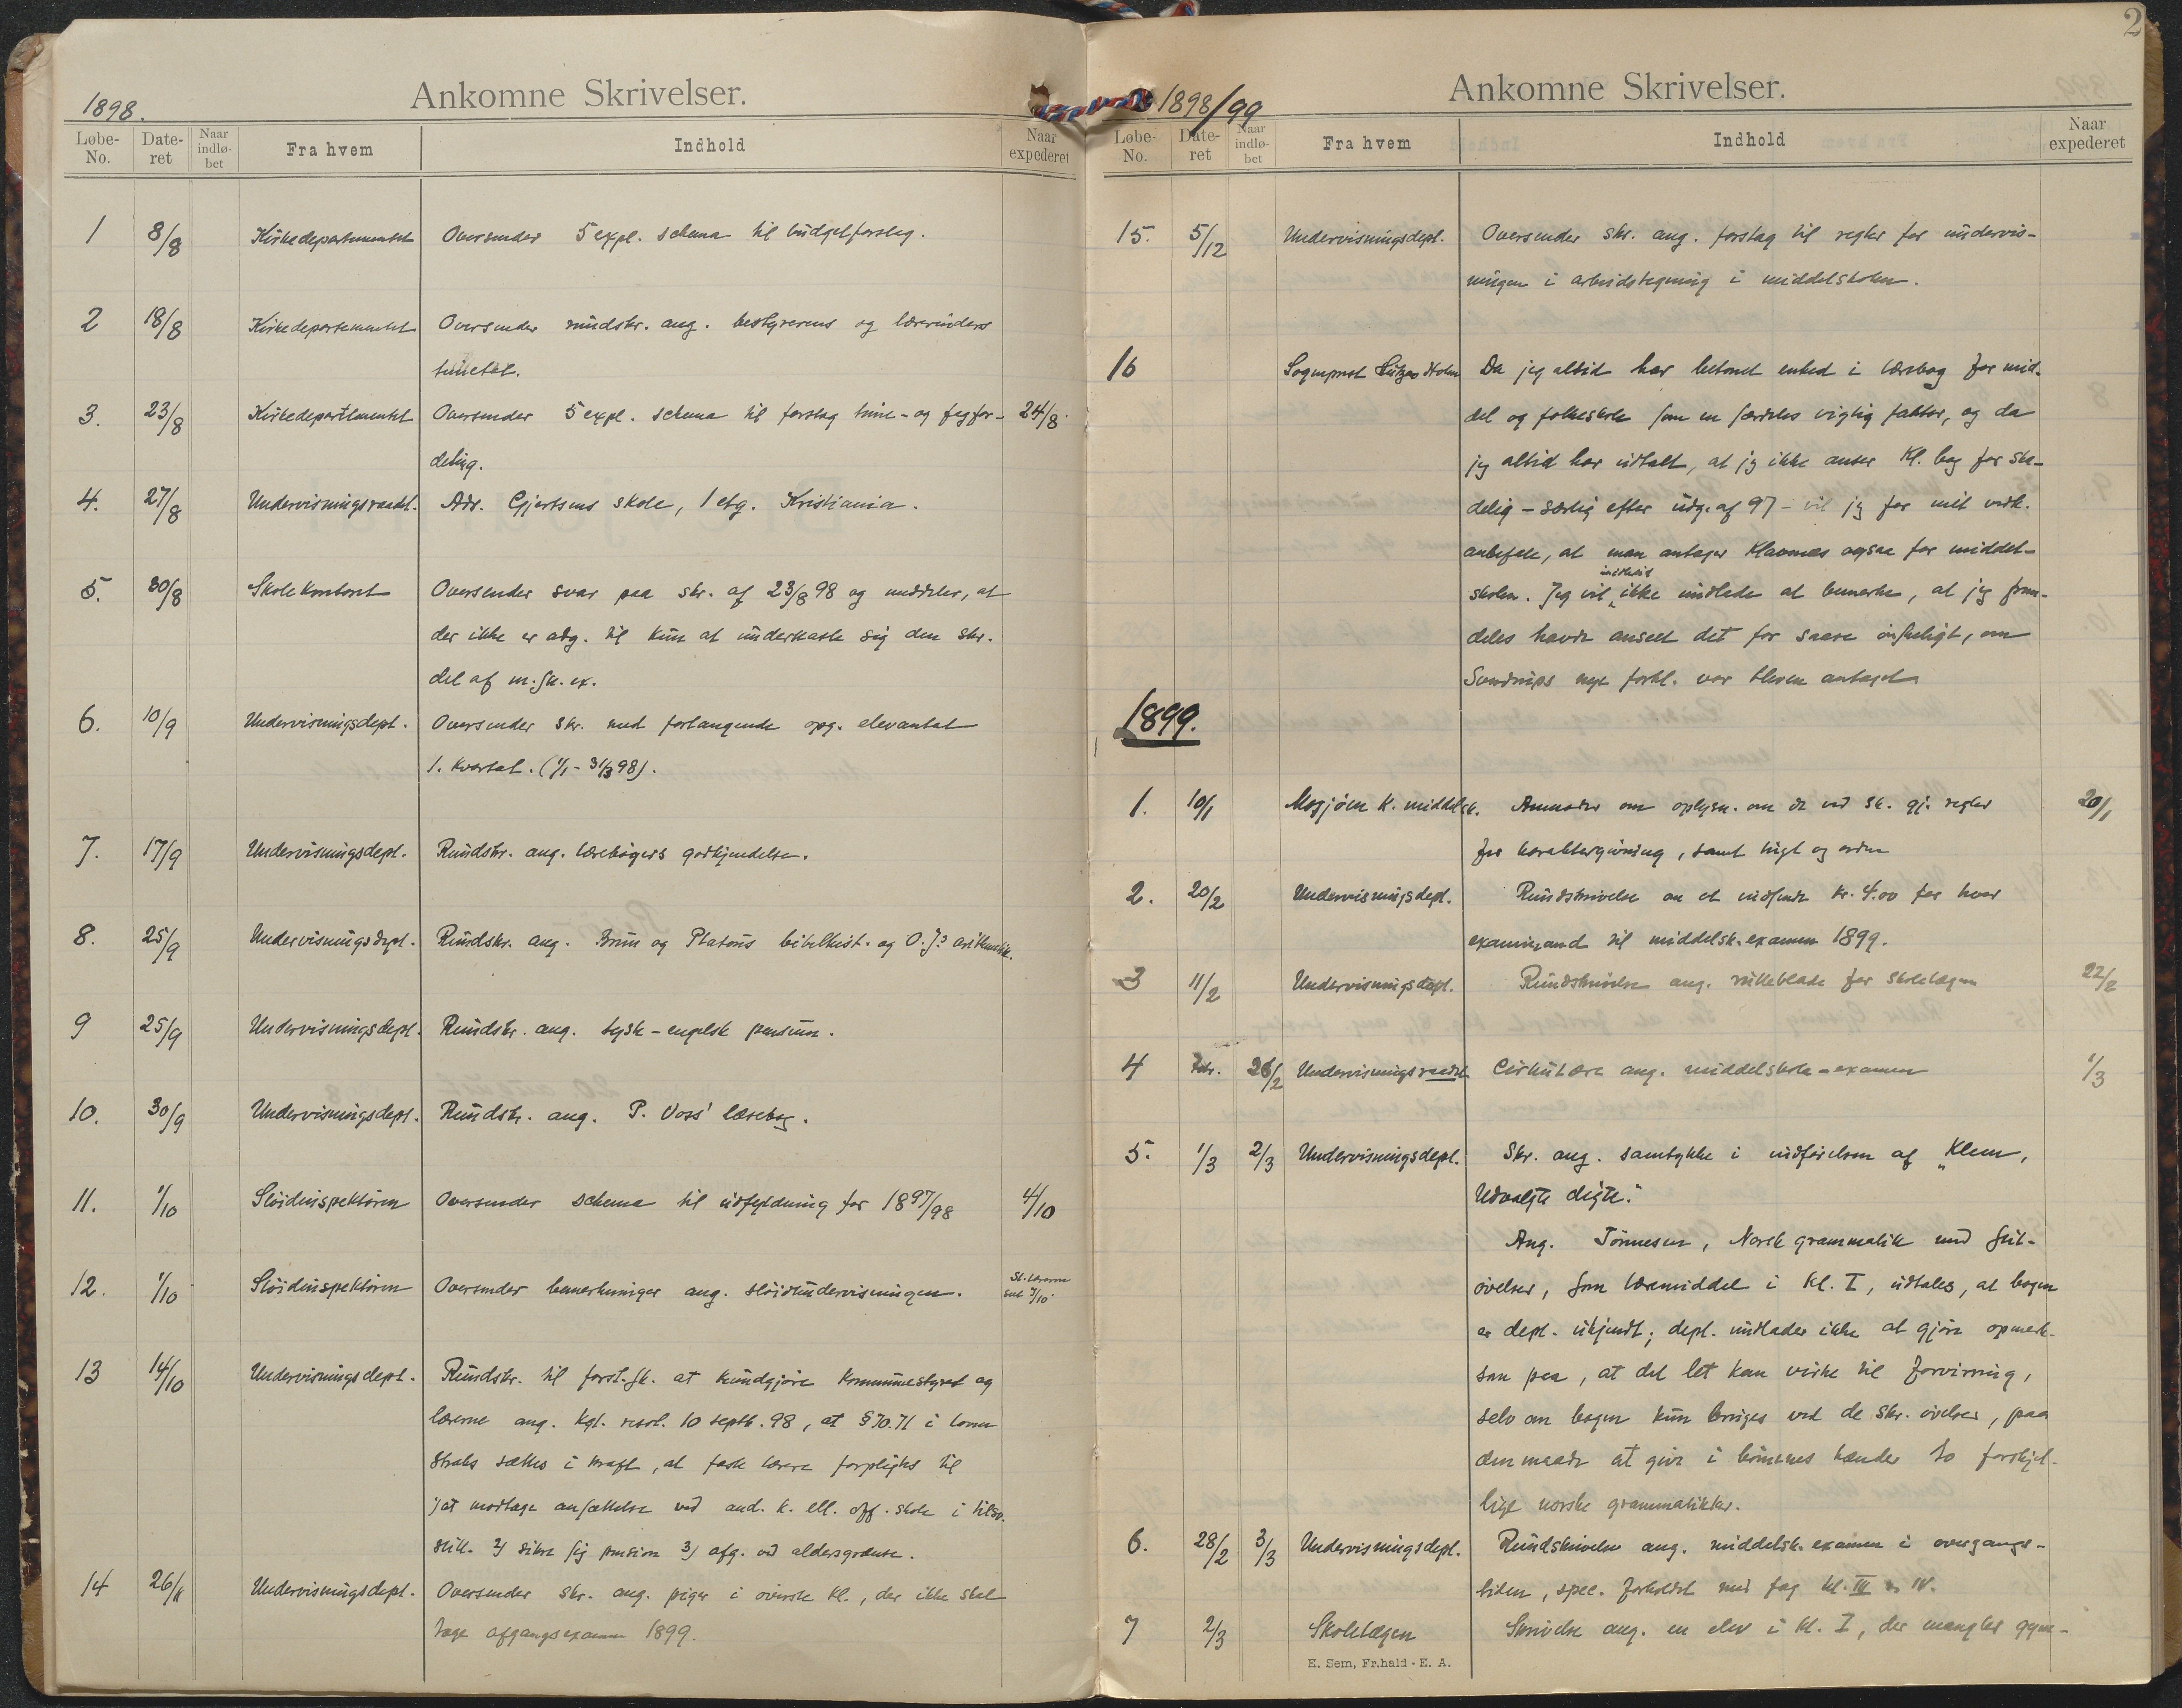 1898.
Ankomne Skrivelser.
Løbe-No. Dateret Naar indløbet Fra hvem Indhold Naar expederet
1 8/8 Kirkedepartementet Oversender 5 expl. schema til budgetforslag.
2 18/8 Kirkedepartementet Oversender rundskr. ang. bestyrerens og lærerinders
timetal.
3. 23/8 Kirkedepartementet Oversender 5 expl. schema til forslag time- og fagfor- 24/8.
deling.
4. 27/8 Undervisningsraadet. Adr. Gjertsens skole, 1 etg. Kristiania.
5. 30/8 Skolekontoret Oversender svar paa skr. af 23/8 98 og meddeler, at
der ikke er adg. til kun at underkaste sig den skr.
del af m.sk.ex.
6. 10/9 Undervisningsdept. Oversender skr. med forlangende opg. elevantal
1. kvartal. (1/1 - 31/3 98).
7. 17/9 Undervisningsdept. Rundskr. ang. lærebøgers godkjendelse.
8. 25/9 Undervisningsdept. Rundskr. ang. Brun og Platous bibelhist. og O. J.s arithmetik.
9 25/9 Undervisningsdept. Rundskr. ang. tysk-engelsk pensum.
10. 30/9 Undervisningsdept. Rundskr. ang. P. Voss' læsebog.
11. 1/10 Sløidinspektøren Oversender schema til udfyldning for 1897/98 4/10
12. 1/10 Sløidinspektøren Oversender bemerkninger ang. sløidundervisningen. Sl.lærerne 7/10
13 14/10 Undervisningsdept. Rundskr. til forst.sk. at kundgjøre kommunestyret og
lærerne ang. kgl. resol. 10 septb. 98, at § 70.71 i loven
straks sættes i kraft, at faste lærere forpligtes til
1) at modtage ansættelse ved and. k. ell. off. skole i tilsv.
still. 2) sikre sig pension 3) afg. ved aldersgrænse.
14 26/11 Undervisningsdept. Oversender skr. ang. piger i øverste kl., der ikke skal
tage afgangsexamen 1899.
2
1898/99
Ankomne Skrivelser.
Løbe-No. Dateret Naar indløbet Fra hvem Indhold Naar expederet
15. 5/12 Undervisningsdept. Oversender skr. ang. forslag til regler for undervis-
ningen i arbeidstegning i middelskolen.
16 Sogneprest Holm Da jeg altid har betonet enhed i lærebog for mid-
del og folkeskole som en særdeles vigtig faktor, og da
jeg altid har udtalt, at jeg ikke anser Kl. bog for ska-
delig - særlig efter udg. af 97 - vil jeg for mit vedk.
anbefale, at man antager Klavenæs ogsaa for middel-
skolen. Jeg vil imidlertid ikke undlade at bemerke, at jeg frem-
deles havde anseet det for saare ønskeligt, om
Sverdrups nye forkl. var bleven antaget
1899.
1. 10/1 Mosjøen k. middelsk. Anmoder om oplysn. om de ved sk. gj. regler 20/1
for karaktergivning, samt flid og orden
2. 20/2 Undervisningsdept. Rundskrivelse om at indsende kr. 4.00 for hver
examinand til middelsk.examen 1899.
3 11/2 Undervisningsdept. Rundskrivelse ang. rulleblade for skolelægen 22/2
4 Febr. 26/2 Undervisningsraadet Cirkulære ang. middelskole-examen 1/3
5. 1/3 2/3 Undervisningsdept. Skr. ang. samtykke i indførelsen af "Klem,
Udvalgte digte."
Ang. Tønnesen, Norsk grammatik med stil-
øvelser, som læremiddel i kl. I, udtales, at bogen
er dept. ukjendt; dept. undlader ikke at gjøre opmerk-
som paa, at det let kan virke til forvirring,
selv om bogen kun bruges ved de skr. øvelser, paa
den maade at give i børnenes hænder to forskjel-
lige norske grammatikker.
6. 28/2 3/3 Undervisningsdept. Rundskrivelse ang. middelsk.examen i overgangs-
tiden, spec. forholdet med fag kl. III & IV.
7 2/3 Skolelægen Skrivelse ang. en elev i kl. I, der mangler gym-
E. Sem, Fr.hald - E. A.